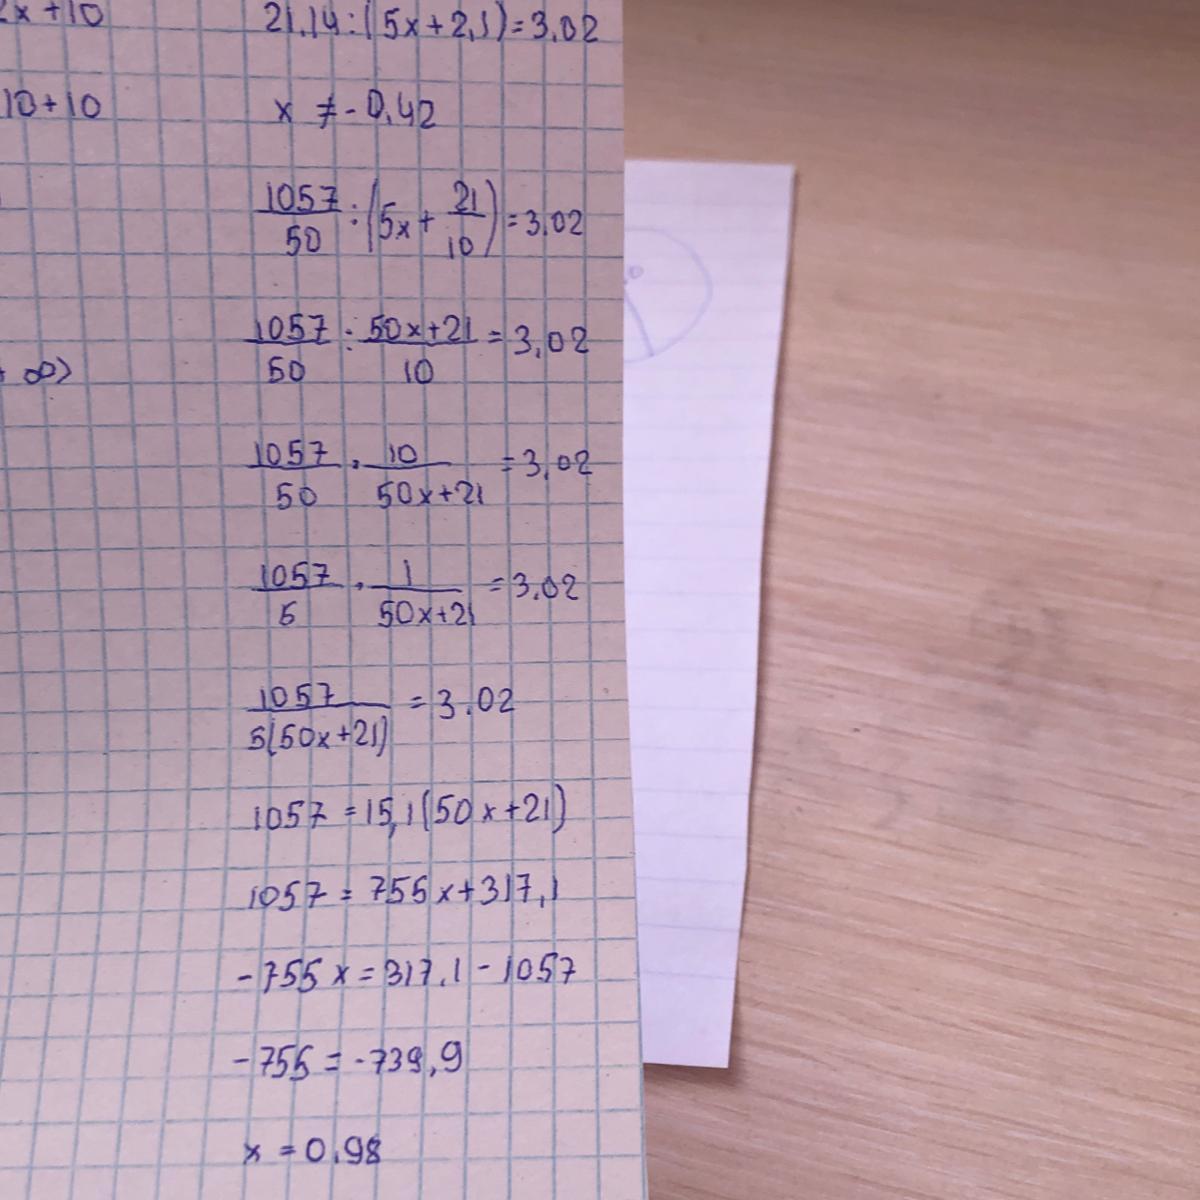 2x+10
10+10
+ ∞>
21.14:(5x+2,1)=3.02
x ≠ -0.42
1057/50 : (5x + 21/10) = 3.02
1057/50 : 50x+21/10 = 3,02
1057/50 · 10/50x+21 = 3,02
1057/5 · 1/50x+21 = 3.02
1057/5(50x+21) = 3.02
1057 = 15,1(50x+21)
1057 = 755x+317,1
-755x = 317.1 - 1057
-755 = -739,9
x = 0.98